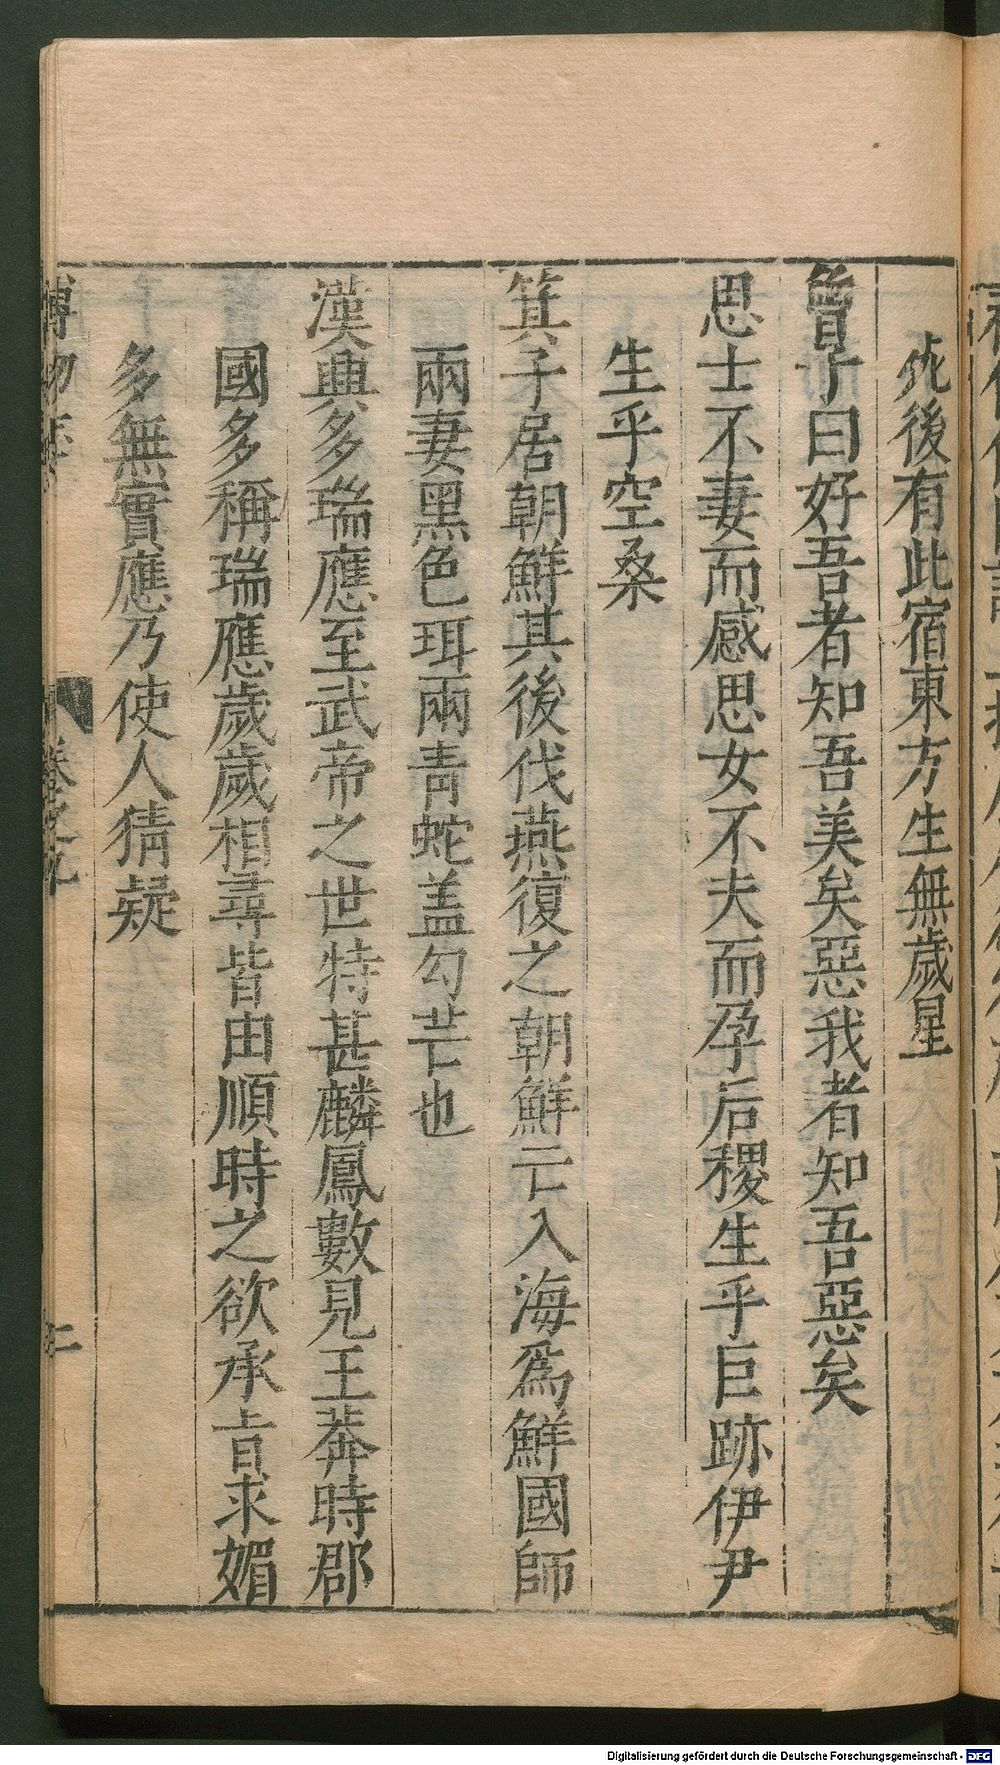 死後有此宿東方生無歲星
曾子曰好吾者知吾美矣惡我者知吾惡矣
思士不妻而感思女不夫而孕后稷生乎巨跡伊尹
生乎空桑
箕子居朝鮮其後伐燕復之朝鮮亡入海爲鮮國師
兩妻黑色珥兩青蛇盖勾芒也
漢興多瑞應至武帝之世特甚麟鳳數見王莽時郡
國多稱瑞應歲歲相尋皆由順時之欲承旨求媚
多無實應乃使人猜疑
博物志
卷之九
二
Digitalisierung gefördert durch die Deutsche Forschungsgemeinschaft - DFG